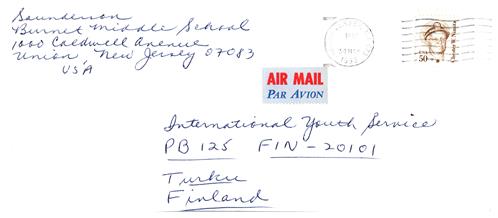 Saunderson
Burnet Middle School
1000 Caldwell Avenue
Union, New Jersey 07083
USA
50
AIR MAIL
PAR AVION
International Youth Service
PB 125 FIN-20101
Turku
Finland